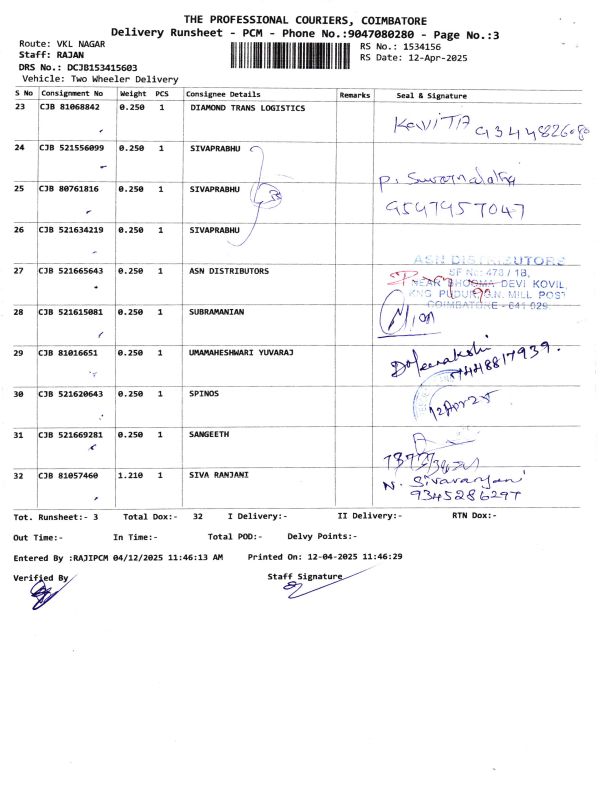 THE PROFESSIONAL COURIERS, COIMBATORE
Delivery Runsheet - PCM - Phone No.:9047080280 - Page No.:3
Route: VKL NAGAR
RS No.: 1534156
Staff: RAJAN
RS Date: 12-Apr-2025
DRS No.: DCJB153415603
Vehicle: Two Wheeler Delivery
S No Consignment No Weight PCS Consignee Details Remarks Seal & Signature
23 CJB 81068842 0.250 1 DIAMOND TRANS LOGISTICS
KAVITA
24 CJB 521556099 0.250 1 SIVAPRABHU
25 CJB 80761816 0.250 1 SIVAPRABHU
P. Suvarnalatha
9597957047
26 CJB 521634219 0.250 1 SIVAPRABHU
27 CJB 521665643 0.250 1 ASN DISTRIBUTORS
ASN DISTRIBUTORS
SF No: 478 / 1B,
NEAR BHOOMA DEVI KOVIL,
KNG PUDUR, G.N. MILL POST
COIMBATORE - 641 029
28 CJB 521615081 0.250 1 SUBRAMANIAN
29 CJB 81016651 0.250 1 UMAMAHESHWARI YUVARAJ
7448817939.
30 CJB 521620643 0.250 1 SPINOS
12 Apr 25
31 CJB 521669281 0.250 1 SANGEETH
32 CJB 81057460 1.210 1 SIVA RANJANI
N. Sivaranjani
9345286297
Tot. Runsheet:- 3 Total Dox:- 32 I Delivery:- II Delivery:- RTN Dox:-
Out Time:- In Time:- Total POD:- Delvy Points:-
Entered By :RAJIPCM 04/12/2025 11:46:13 AM Printed On: 12-04-2025 11:46:29
Verified By Staff Signature